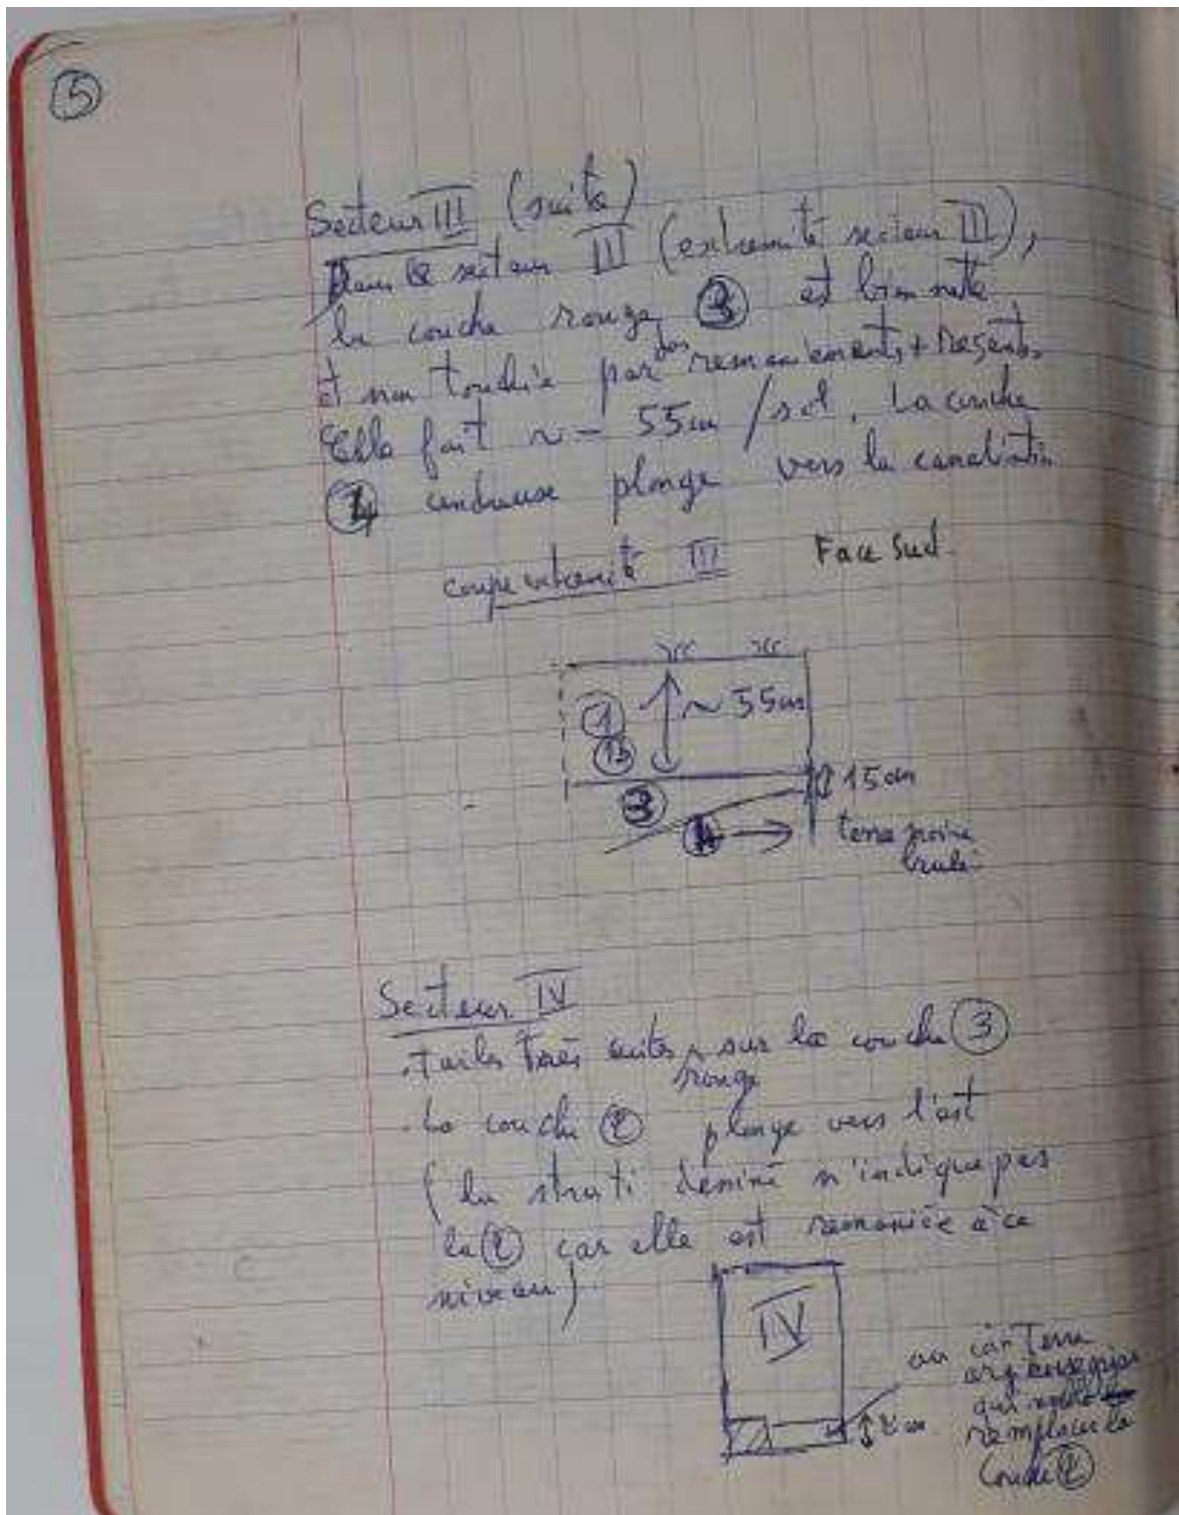 ⑤
Secteur III (suite)
Dans le secteur III (extremité secteur III),
la couche rouge ③ est bien nette
et non touchée par des remaniements + resents.
Elle fait ~ - 55cm / sol. La couche
④ cendreuse plonge vers la canalisation
coupe extremité III Face Sud
① ~ 55cm
③ 15cm
④ → terre noire
brulé
Secteur IV
. Tuiles très cuites sur la couche ③
rouge
. La couche ② plonge vers l'est
(la strati dessiné n'indique pas
la ② car elle est remaniée à ce
niveau)
IV
terre
argileuse grise
qui
remplace la
couche ②